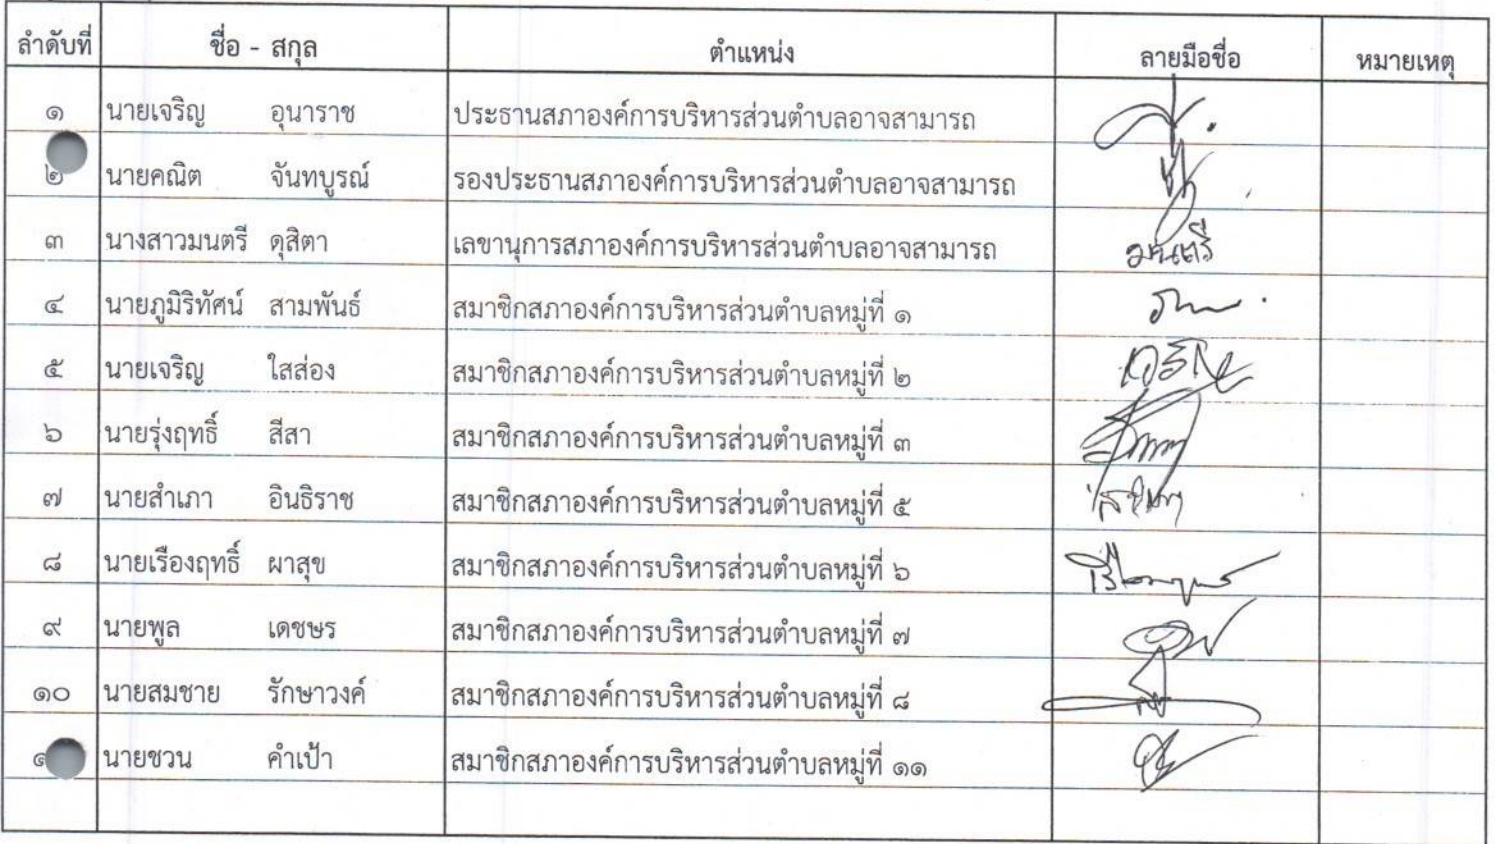 ลำดับที่ ชื่อ - สกุล ตำแหน่ง ลายมือชื่อ หมายเหตุ
๑ นายเจริญ อุนาราช ประธานสภาองค์การบริหารส่วนตำบลอาจสามารถ
๒ นายคณิต จันทบูรณ์ รองประธานสภาองค์การบริหารส่วนตำบลอาจสามารถ
๓ นางสาวมนตรี ดุสิตา เลขานุการสภาองค์การบริหารส่วนตำบลอาจสามารถ มนตรี
๔ นายภูมิริทัศน์ สามพันธ์ สมาชิกสภาองค์การบริหารส่วนตำบลหมู่ที่ ๑
๕ นายเจริญ ใสส่อง สมาชิกสภาองค์การบริหารส่วนตำบลหมู่ที่ ๒ เจริญ
๖ นายรุ่งฤทธิ์ สีสา สมาชิกสภาองค์การบริหารส่วนตำบลหมู่ที่ ๓
๗ นายสำเภา อินธิราช สมาชิกสภาองค์การบริหารส่วนตำบลหมู่ที่ ๕
๘ นายเรืองฤทธิ์ ผาสุข สมาชิกสภาองค์การบริหารส่วนตำบลหมู่ที่ ๖
๙ นายพูล เดชษร สมาชิกสภาองค์การบริหารส่วนตำบลหมู่ที่ ๗
๑๐ นายสมชาย รักษาวงค์ สมาชิกสภาองค์การบริหารส่วนตำบลหมู่ที่ ๘
นายชวน คำเป้า สมาชิกสภาองค์การบริหารส่วนตำบลหมู่ที่ ๑๑